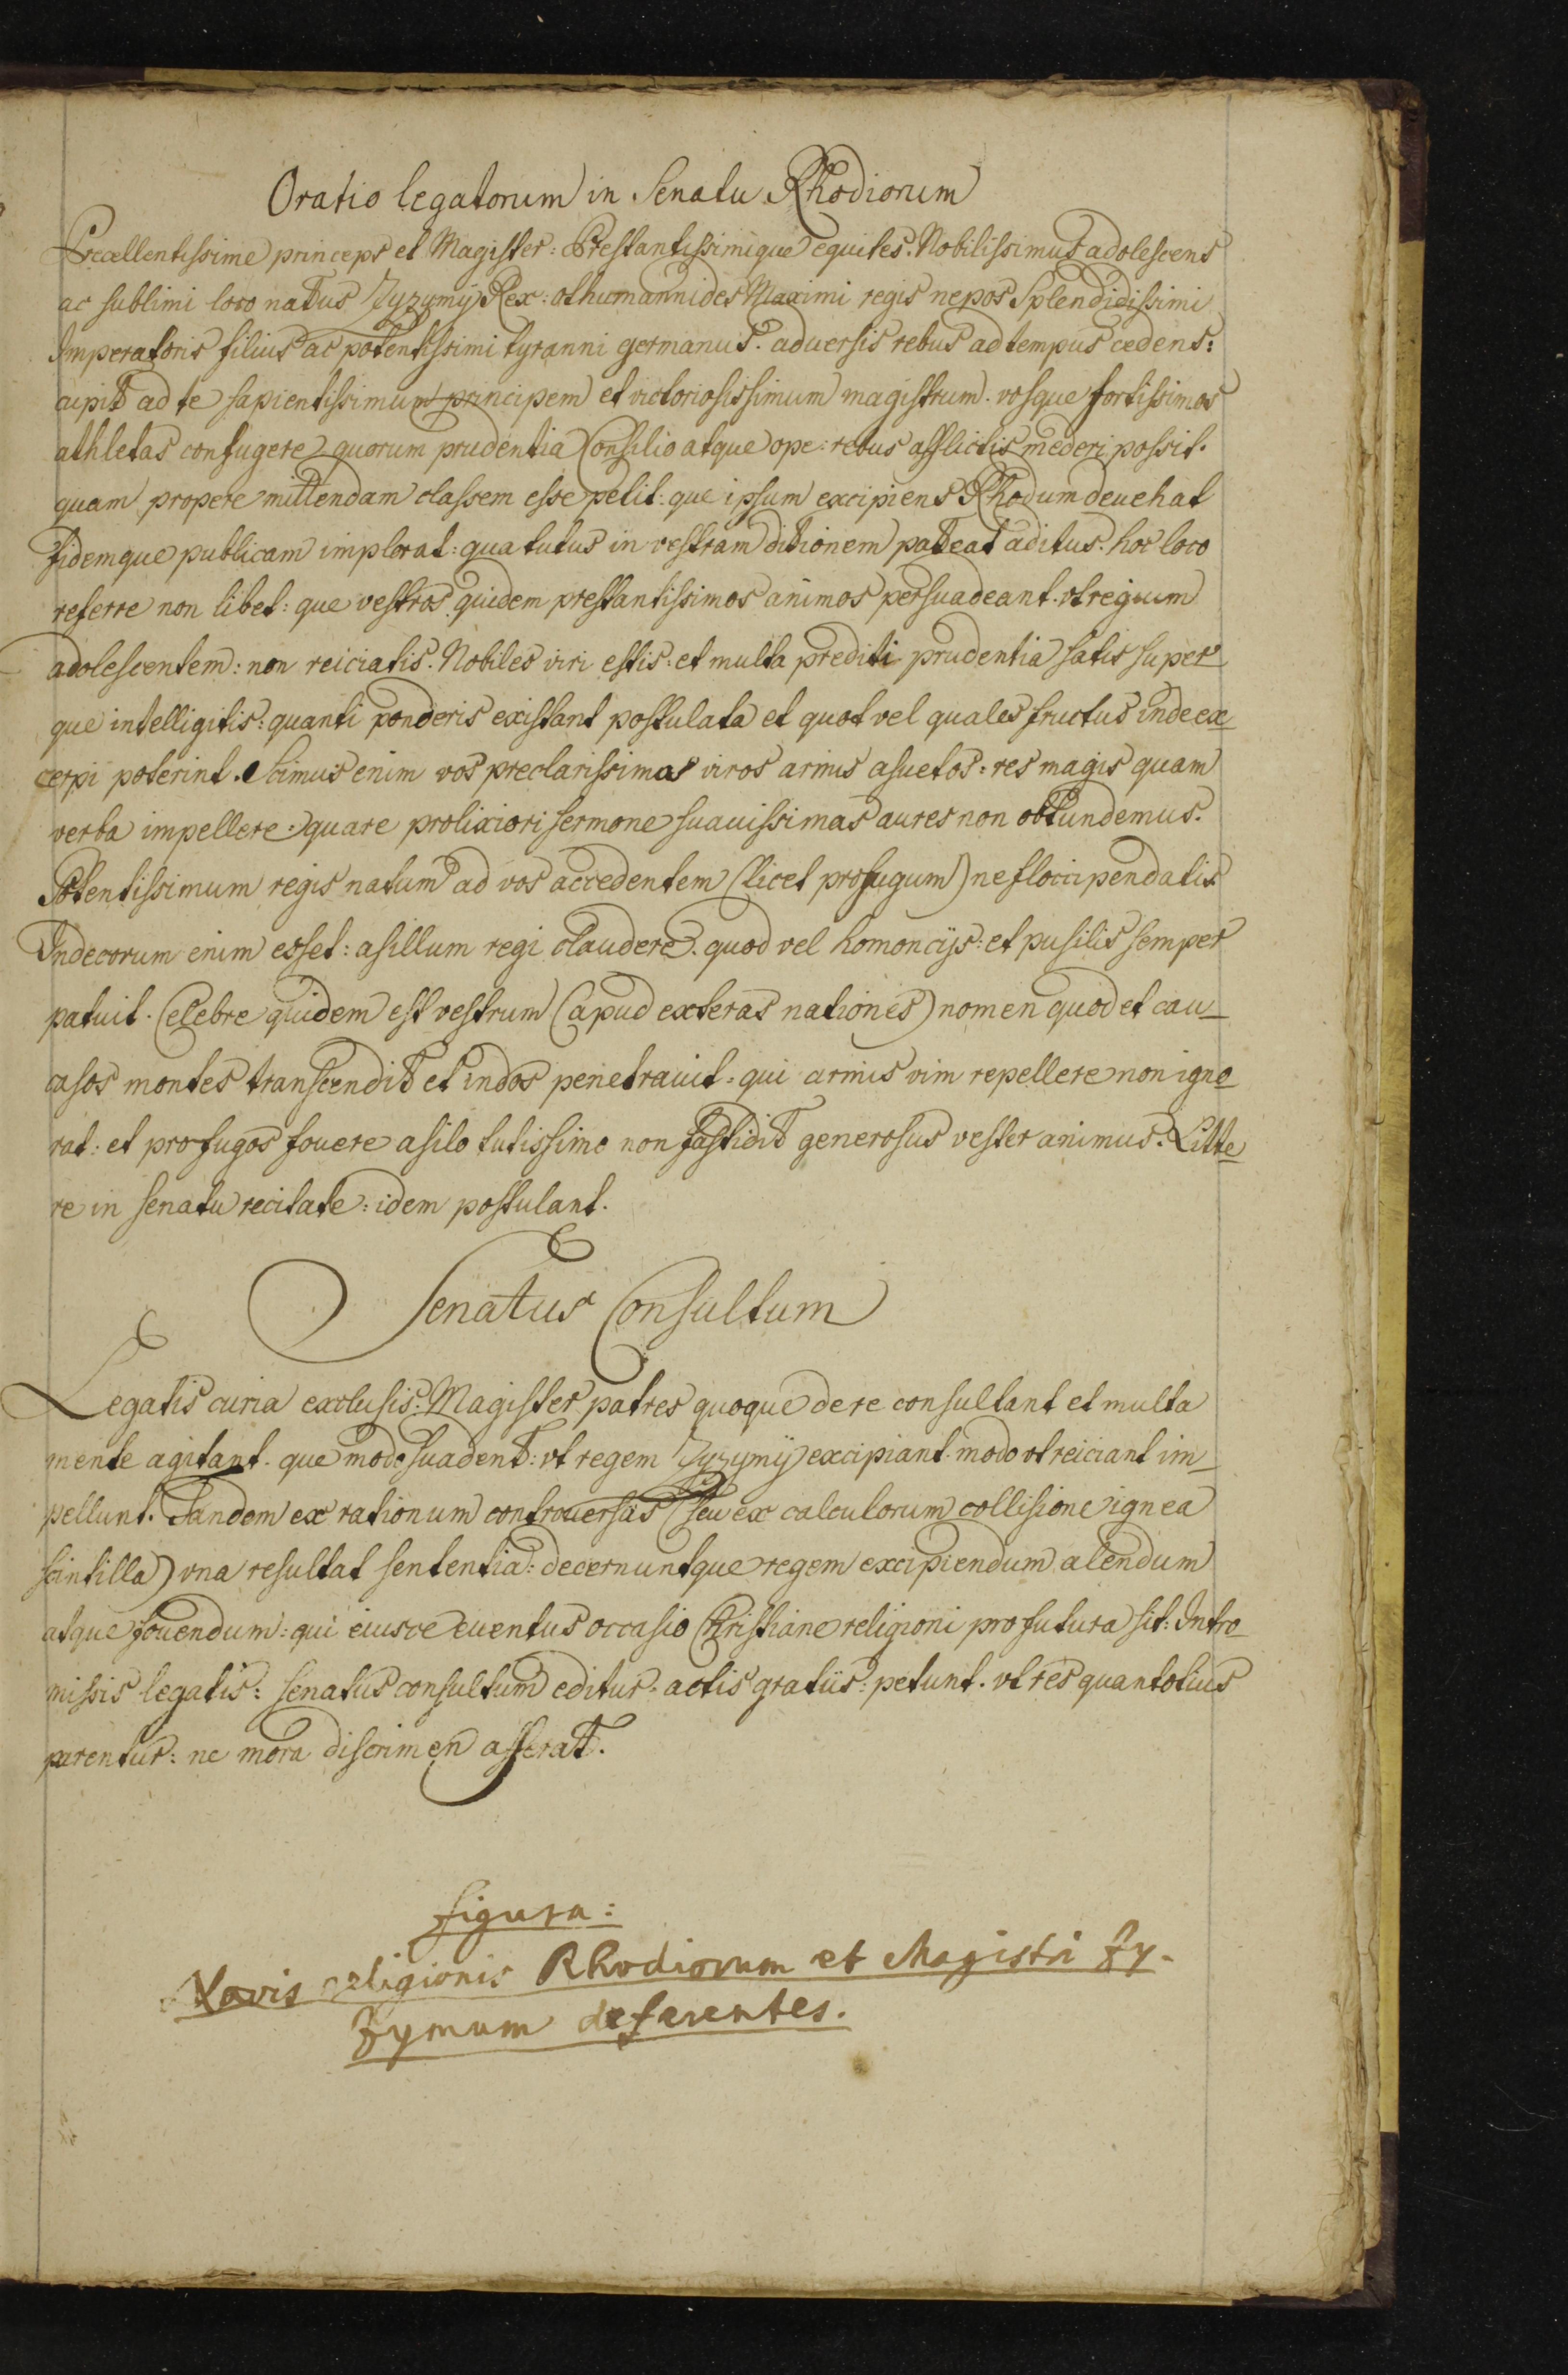 Oratio legatorum in Senatu Rhodiorum
Precellentissime princeps et Magister: Prestantissimique equites. Nobilissimus adolescens
ac sublimi loco natus Zyzymÿ Rex: othumannides Maximi regis nepos Splendidissimi
Imperatoris filius ac potentissimi tyranni germanus. aduersis rebus ad tempus cedens:
cupit ad te sapientissimum principem et victoriosissimum magistrum. vosque fortissimos
athletas confugere quorum prudentia Consilio atque ope: rebus afflictis mederi possit.
quam propere mittendam classem esse petit: que ipsum excipiens Rhodum deuehat
fidemque publicam implorat: qua tutus in vestram ditionem pateat aditus. hoc loco
referre non libet: que vestros quidem prestantissimos animos persuadeant. vt regium
adolescentem: non reiciatis. Nobiles viri estis: et multa prediti prudentia satis super
que intelligitis: quanti ponderis existant postulata et quot vel quales fructus inde ex
cerpi poterint. Scimus enim vos preclarissimos viros armis asuetos: res magis quam
verba impellere: quare prolixiori sermone suauissimas aures non obtundemus.
Potentissimum regis natum ad vos accedentem (licet profugum) ne floccipendatis
Indecorum enim esset: asillum regi claudere. quod vel homoncijs: et pusilis semper
patuit. Celebre quidem est vestrum (apud exteras nationes) nomen quod et cau_
casos montes transcendit et indos penetrauit. qui armis vim repellere non igno
rat: et profugos fouere asilo tutissimo non fastidit generosus vester animus. Litte
re in senatu recitate: idem postulant.
Senatus Consultum
Legatis curia exclusis: Magister patres quoque de re consultant et multa
mente agitant. que modo suadent: vt regem Zyzymÿ excipiant. modo vt reiciant im_
pellunt. Tandem ex rationum controuersas (seu ex calculorum collisione ignea
scintilla) vna resultat sententia: decernuntque regem excipiendum alendum
atque fouendum: qui eiusce euentus occasio Christiane religioni profutura sit: Intro_
missis legatis: senatus consultum editur. actis gratiis: petunt. vt res quantotius
parentur: ne mora discrimen afferat.
figura:
Navis religionis Rhodiorum et Magistri Zy-
zymum deferentes.